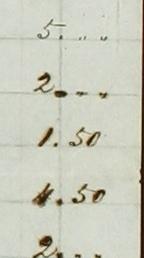 5. „ „
2. „ „
1. 50
1. 50
2. „ „